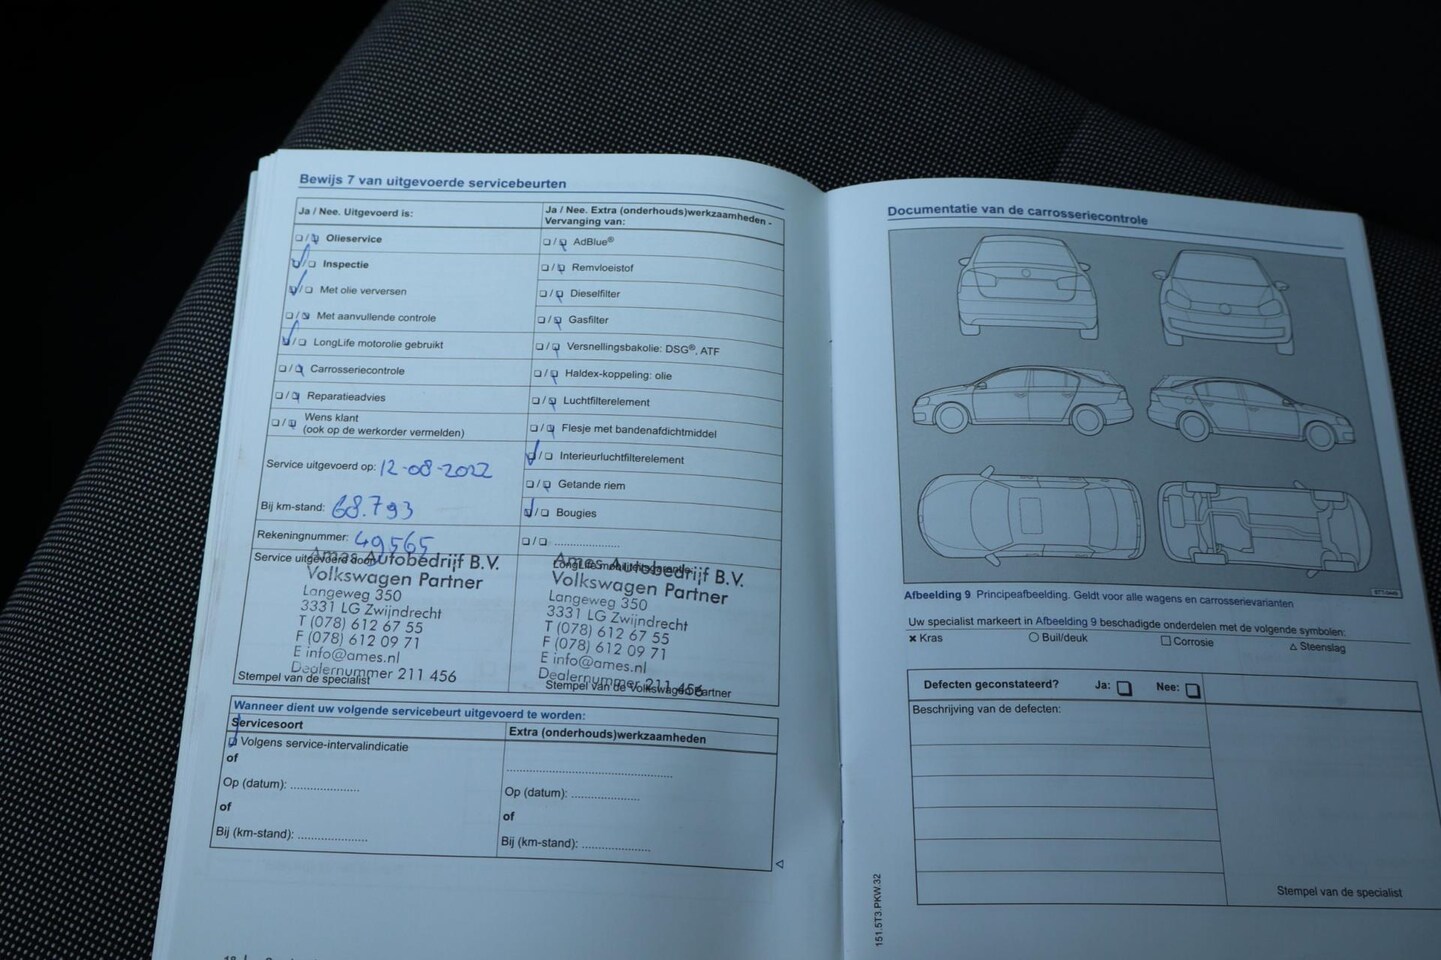 Bewijs 7 van uitgevoerde servicebeurten
Ja / Nee. Uitgevoerd is:
Olieservice
Inspectie
Met olie verversen
Met aanvullende controle
LongLife motorolie gebruikt
Carrosseriecontrole
Reparatieadvies
Wens klant
(ook op de werkorder vermelden)
Service uitgevoerd op: 12-08-2022
Bij km-stand: 68.793
Rekeningnummer: 49565
Service uitgevoerd door:
Ames Autobedrijf B.V.
Volkswagen Partner
Langeweg 350
3331 LG Zwijndrecht
T (078) 612 67 55
F (078) 612 09 71
E info@ames.nl
Dealernummer 211 456
Stempel van de specialist
Ja / Nee. Extra (onderhouds)werkzaamheden -
Vervanging van:
AdBlue®
Remvloeistof
Dieselfilter
Gasfilter
Versnellingsbakolie: DSG®, ATF
Haldex-koppeling: olie
Luchtfilterelement
Flesje met bandenafdichtmiddel
Interieurluchtfilterelement
Getande riem
Bougies
....................
Ames Autobedrijf B.V.
Volkswagen Partner
Langeweg 350
3331 LG Zwijndrecht
T (078) 612 67 55
F (078) 612 09 71
E info@ames.nl
Dealernummer 211 456
Stempel van de Volkswagen Partner
Wanneer dient uw volgende servicebeurt uitgevoerd te worden:
Servicesoort
Volgens service-intervalindicatie
of
Op (datum): ....................
of
Bij (km-stand): ....................
Extra (onderhouds)werkzaamheden
..................................................
Op (datum): ....................
of
Bij (km-stand): ....................
Documentatie van de carrosseriecontrole
Afbeelding 9 Principeafbeelding. Geldt voor alle wagens en carrosserievarianten
Uw specialist markeert in Afbeelding 9 beschadigde onderdelen met de volgende symbolen:
Kras Buil/deuk Corrosie Steenslag
Defecten geconstateerd? Ja: Nee:
Beschrijving van de defecten:
Stempel van de specialist
151.5T3.PKW.32